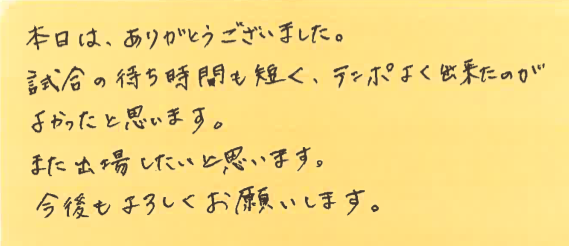 本日は、ありがとうございました。
試合の待ち時間も短く、テンポよく出来たのが
よかったと思います。
また出場したいと思います。
今後もよろしくお願いします。